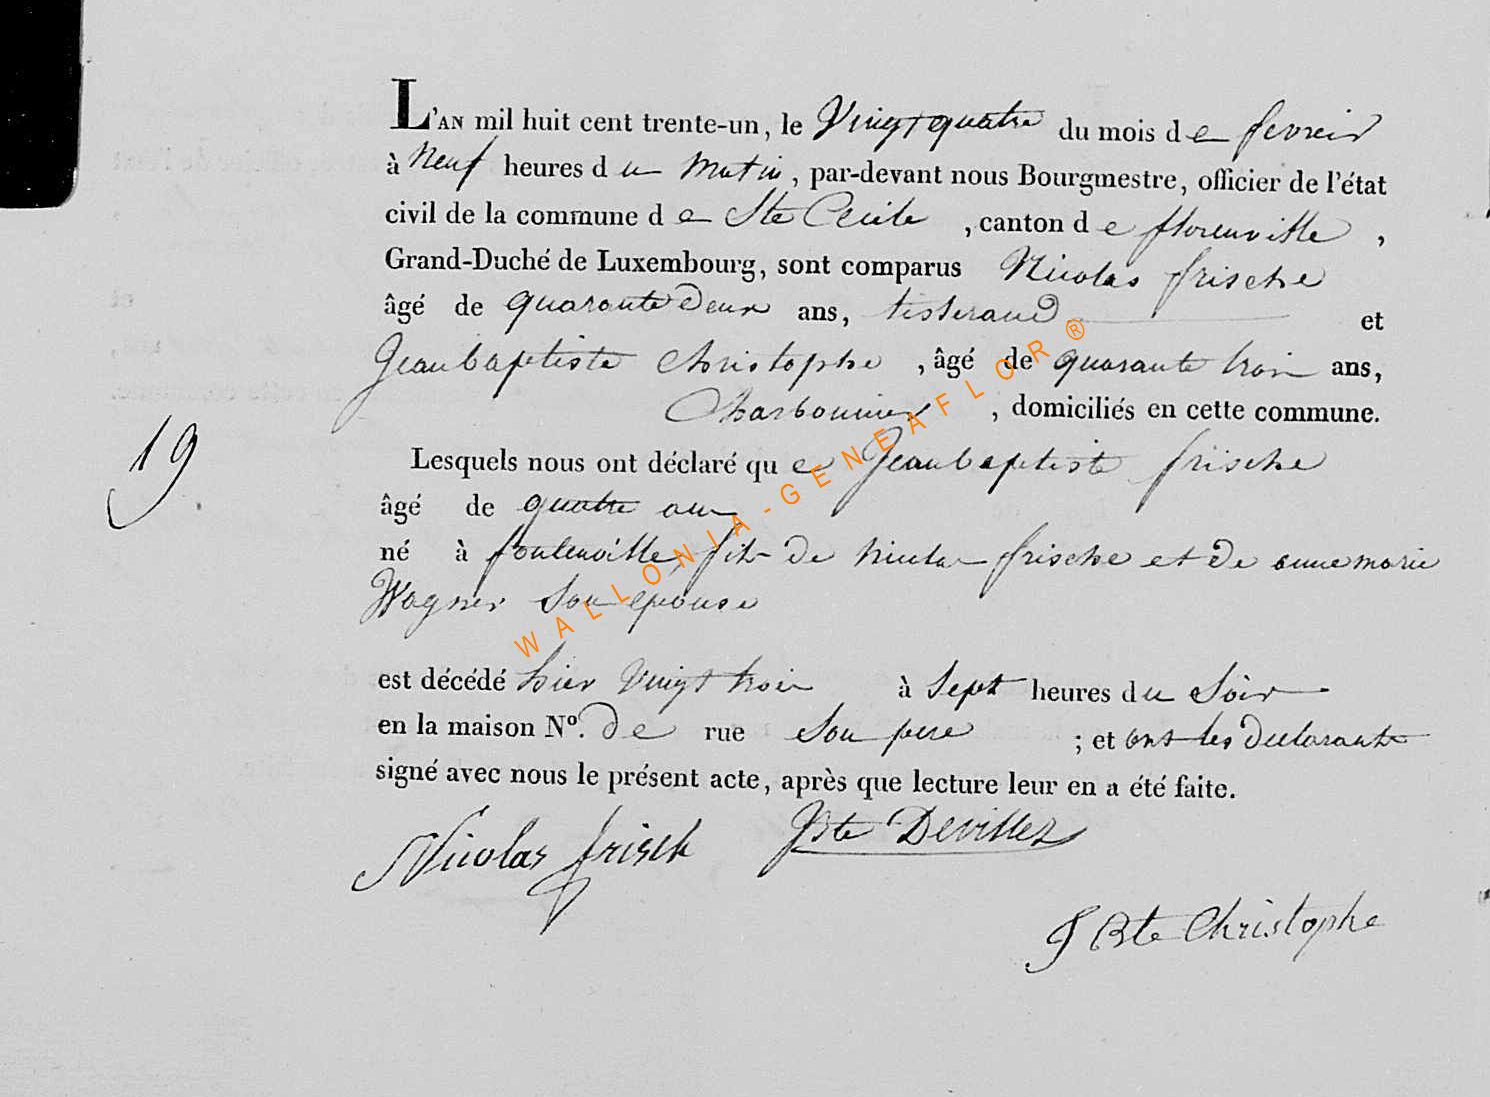 L'AN mil huit cent trente-un, le Vingt quatre du mois de fevrier
à Neuf heures du Matin, par-devant nous Bourgmestre, officier de l'état
civil de la commune de Ste Cecile, canton de florenville,
Grand-Duché de Luxembourg, sont comparus Nicolas frische
âgé de quarante deux ans, tisserand et
Jeanbaptiste christophe, âgé de quarante trois ans,
Charbonnier, domiciliés en cette commune.
19
Lesquels nous ont déclaré que Jeanbaptiste frische
âgé de quatre ans
né à fontenoille fils de nicolas frische et de anne marie
Wagner son epouse
est décédé hier Vingt trois à Sept heures du Soir
en la maison N°. de rue Son pere ; et ont les declarants
signé avec nous le présent acte, après que lecture leur en a été faite.
Nicolas frisch JBte Devillez
J Bte Christophe
WALLONIA-GENEAFLOR ®